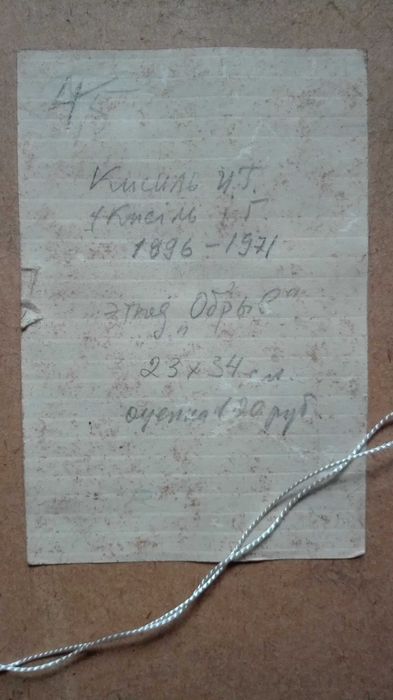 45
Кисіль И.Г.
1896 - 1971
этюд "Обрыв"
23 x 34 см.
оценка 120 руб.